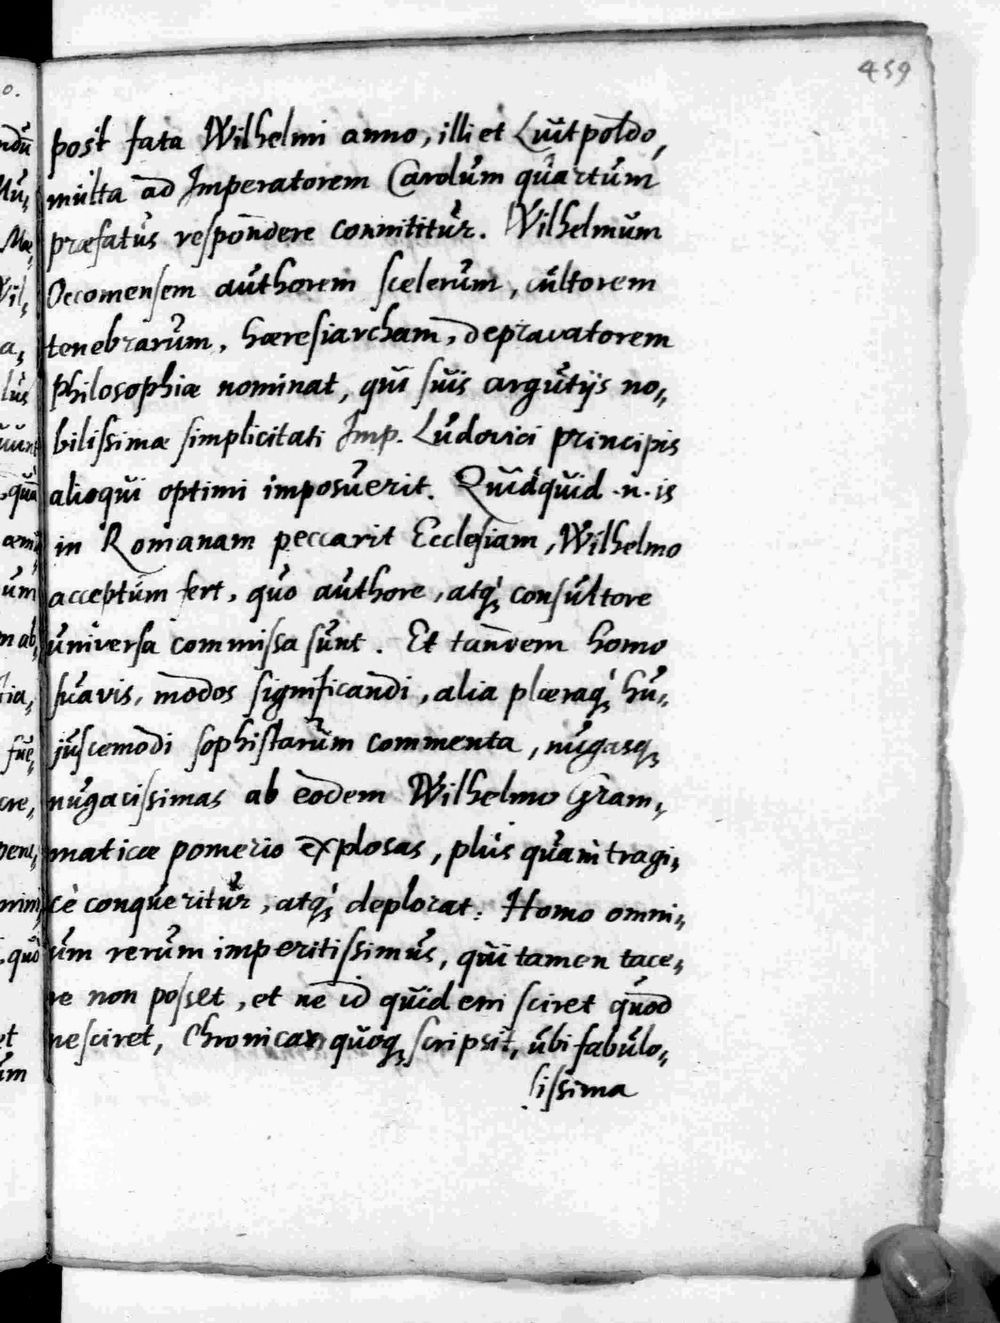 459
post fata Wilhelmi anno, illi et Luitpoldo,
multa ad Imperatorem Carolum quartum
præfatus respondere connititur. Wilhelmum
Occomensem authorem scelerum, cultorem
tenebrarum, hæresiarcham, depravatorem
philosophiæ nominat, qui suis argutijs no„
bilissimæ simplicitati Imp. Ludovici principis
alioqui optimi imposuerit. Quidquid .n. is
in Romanam peccarit Ecclesiam, Wilhelmo
acceptum fert, quo authore, atq; consultore
universa commissa sunt. Et tandem homo
suavis, modos significandi, alia plæraq; hu„
juscemodi sophistarum commenta, nugasq;
nugacissimas ab eodem Wilhelmo Gram„
maticæ pomerio explosas, plus quàm tragi„
cè conqueritur, atq; deplorat: Homo omni„
um rerum imperitissimus, qui tamen tace„
re non posset, et ne id quidem sciret quod
nesciret, Chronica quoq; scripsit, ubi fabulo„
sissima